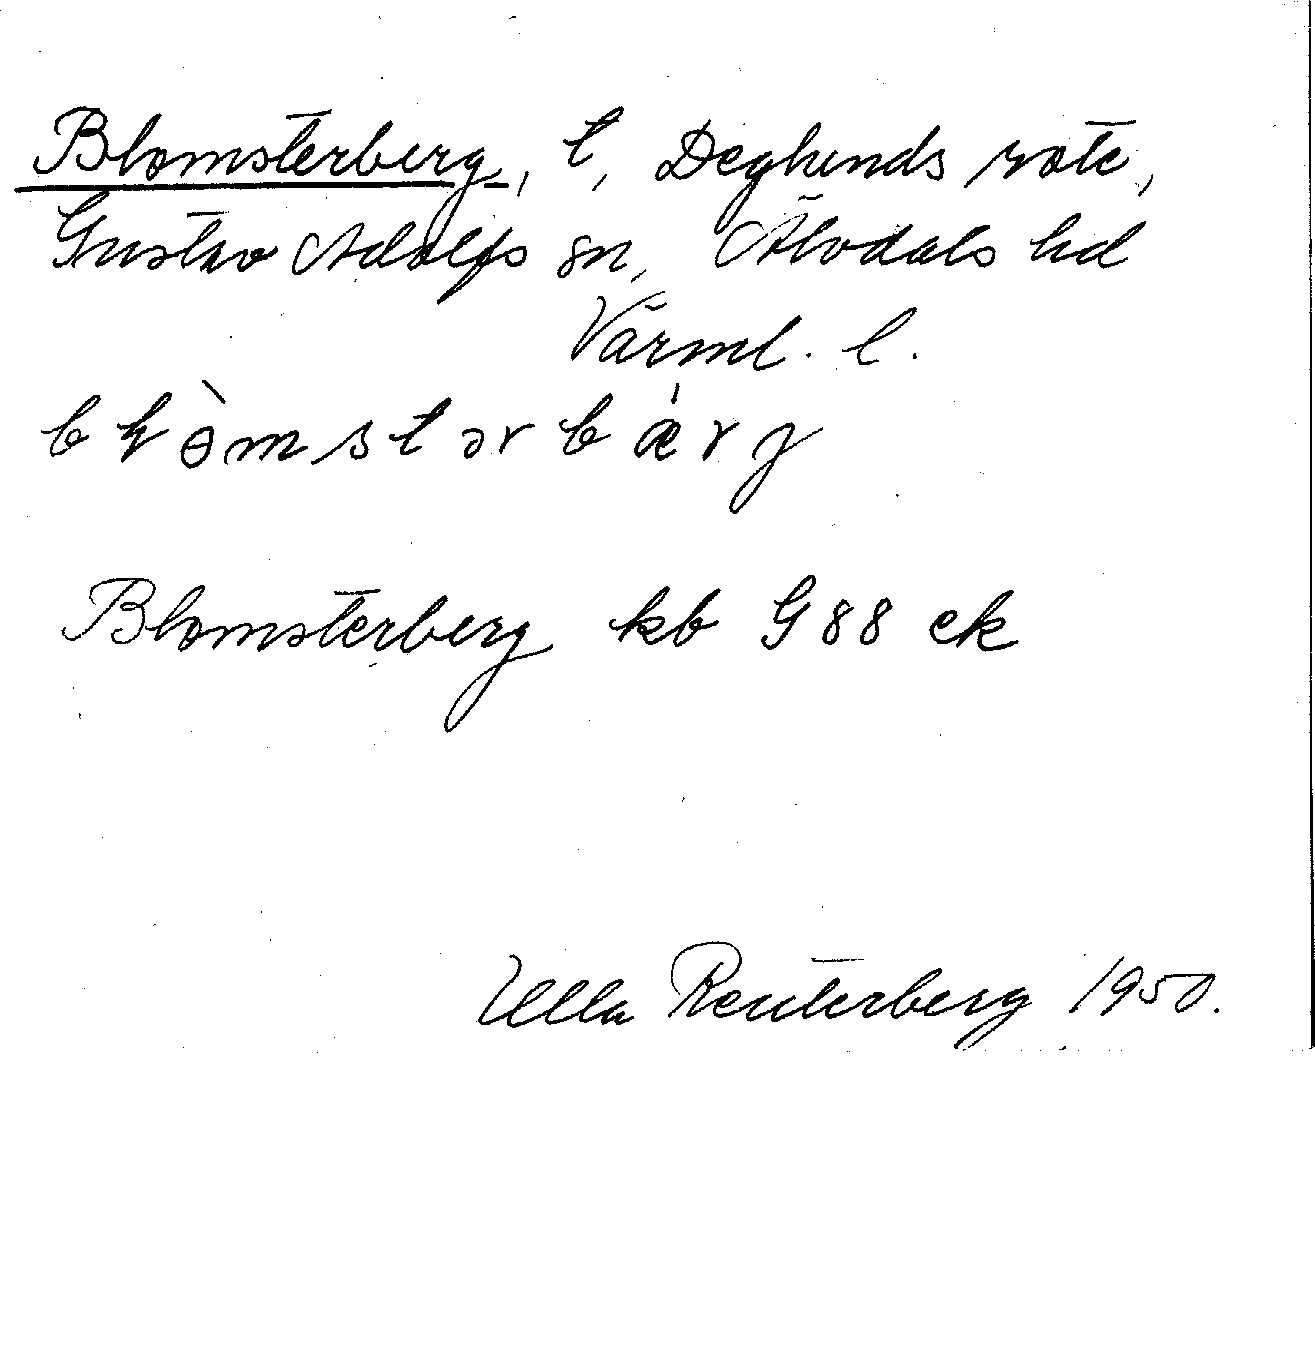 Blomsterberg, t, Deglunds rote,
Gustav Adolfs sn, Älvdals hd
Värml. l.
bɽɵ̀mstərbæ̍rj
Blomsterberg kb G88 ek
Ulla Reuterberg 1950.